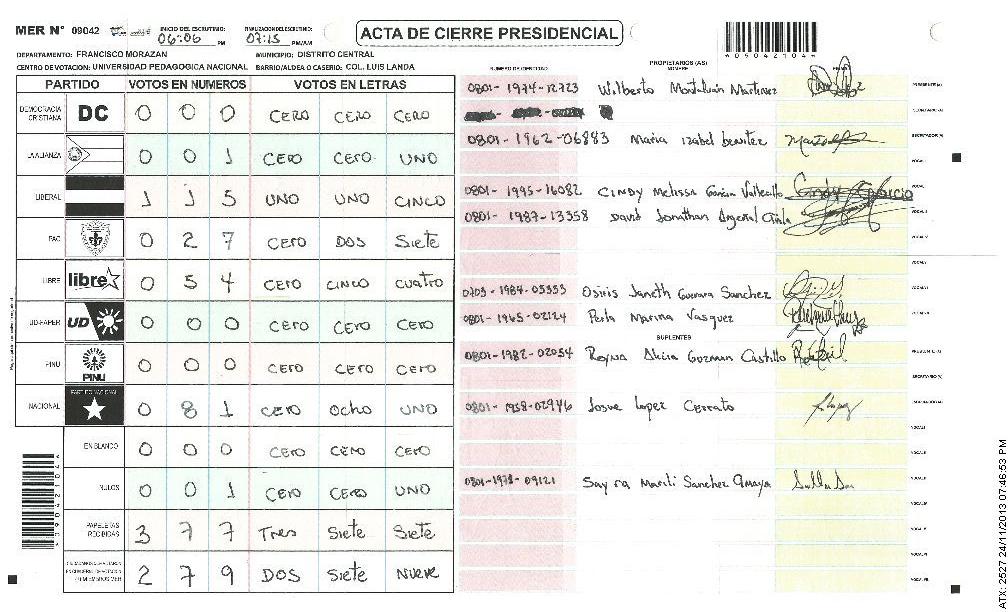 MER N° 09042 INICIO DEL ESCRUTINIO: 06:06 PM FINALIZACION DEL ESCRUTINIO: 07:15 PM/AM
ACTA DE CIERRE PRESIDENCIAL
*09042104*
DEPARTAMENTO: FRANCISCO MORAZAN MUNICIPIO: DISTRITO CENTRAL
CENTRO DE VOTACION: UNIVERSIDAD PEDAGOGICA NACIONAL BARRIO/ALDEA O CASERIO: COL. LUIS LANDA
PARTIDO VOTOS EN NUMEROS VOTOS EN LETRAS
DEMOCRACIA CRISTIANA DC 0 0 0 CERO CERO CERO
LA ALIANZA 0 0 1 CERO CERO UNO
LIBERAL 1 1 5 UNO UNO CINCO
PAC 0 2 7 CERO DOS Siete
LIBRE libre 0 5 4 CERO CINCO cuatro
UD-FAPER UD 0 0 0 CERO CERO CERO
PINU PINU 0 0 0 CERO CERO CERO
NACIONAL PARTIDO NACIONAL 0 8 1 CERO Ocho UNO
EN BLANCO 0 0 0 CERO CERO CERO
NULOS 0 0 1 CERO CERO UNO
PAPELETAS RECIBIDAS 3 7 7 Tres Siete Siete
2 7 9 DOS Siete Nueve
NUMERO DE IDENTIDAD PROPIETARIOS (AS) NOMBRE FIRMA
0801-1974-12723 Wilberto Montalvan Martinez PRESIDENTE (A)
SECRETARIO (A)
0801-1962-06883 Maria Izabel benitez ESCRUTADOR (A)
VOCAL I
0801-1995-16082 CINDY Melissa Garcia Vallecillo VOCAL II
0801-1987-13358 David Jonathan Argeñal VOCAL III
VOCAL IV
VOCAL V
0703-1984-05353 Osiris Janeth Guevara Sanchez VOCAL VI
0801-1965-02124 Perla Marina Vasquez VOCAL VII
SUPLENTES
0801-1982-02054 Reyna Alicia Guzman Castillo PRESIDENTE (A)
SECRETARIO (A)
0801-1958-02946 Josue Lopez Cerrato ESCRUTADOR (A)
VOCAL I
VOCAL II
0801-1978-09121 Sayra Marili Sanchez Amaya VOCAL III
VOCAL IV
VOCAL V
VOCAL VI
VOCAL VII
ATX: 2527 24/11/2013 07:46:53 PM